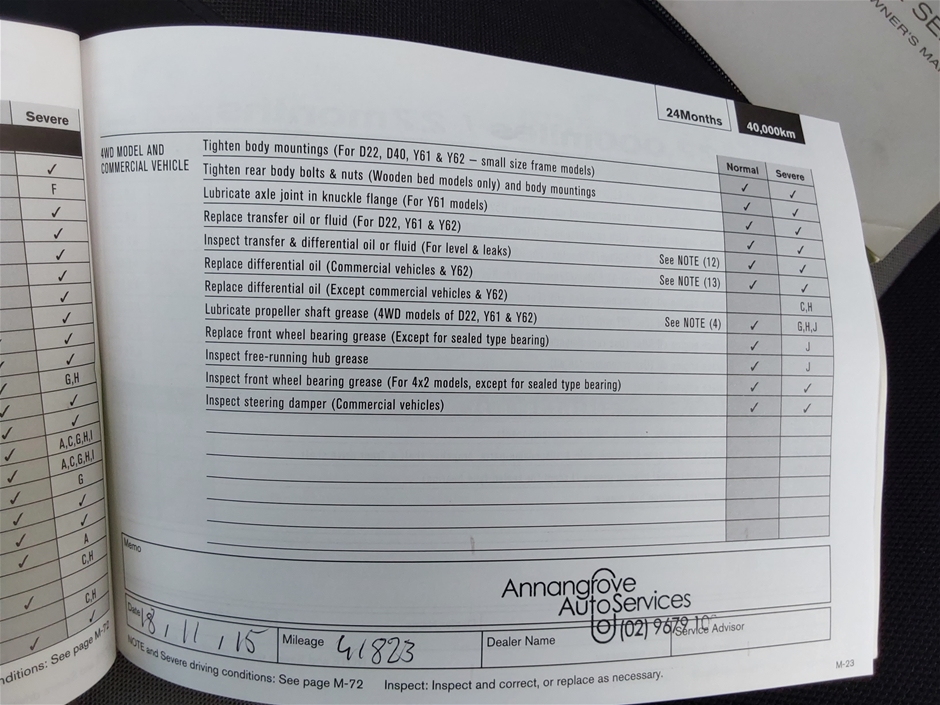 SE
WNER'S MA
Severe
✓
F
✓
✓
✓
✓
✓
✓
✓
✓
G,H
✓
✓
A,C,G,H,I
A,C,G,H,I
G
✓
✓
A
C,H
C,H
✓
nditions: See page M-72
24Months 40,000km
4WD MODEL AND
COMMERCIAL VEHICLE
Normal Severe
Tighten body mountings (For D22, D40, Y61 & Y62 – small size frame models) ✓ ✓
Tighten rear body bolts & nuts (Wooden bed models only) and body mountings ✓ ✓
Lubricate axle joint in knuckle flange (For Y61 models) ✓ ✓
Replace transfer oil or fluid (For D22, Y61 & Y62) ✓ ✓
Inspect transfer & differential oil or fluid (For level & leaks) See NOTE (12) ✓ ✓
Replace differential oil (Commercial vehicles & Y62) See NOTE (13) ✓ ✓
Replace differential oil (Except commercial vehicles & Y62) C,H
Lubricate propeller shaft grease (4WD models of D22, Y61 & Y62) See NOTE (4) ✓ G,H,J
Replace front wheel bearing grease (Except for sealed type bearing) ✓ J
Inspect free-running hub grease ✓ J
Inspect front wheel bearing grease (For 4x2 models, except for sealed type bearing) ✓ ✓
Inspect steering damper (Commercial vehicles) ✓ ✓
Memo
Annangrove
AutoServices
(02) 9679 10
Date 18 / 11 / 15 Mileage 41823 Dealer Name Service Advisor
NOTE and Severe driving conditions: See page M-72 Inspect: Inspect and correct, or replace as necessary.
M-23